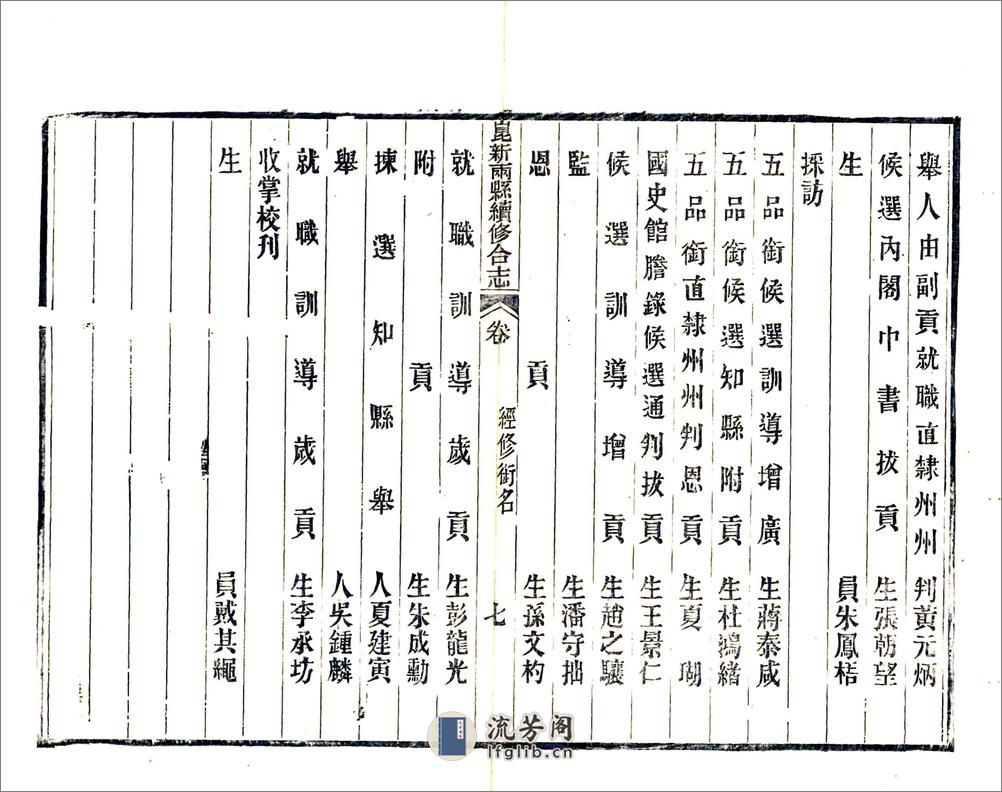 舉人由副貢就職直隸州州判黃元炳
候選內閣中書拔貢生張朝望
生員朱鳳梧
採訪
五品銜候選訓導增廣生蔣泰咸
五品銜候選知縣附貢生杜鴻緒
五品銜直隸州州判恩貢生夏瑚
國史館謄錄候選通判拔貢生王景仁
候選訓導增貢生趙之驤
監生潘守拙
恩貢生孫文杓
崑新兩縣續修合志 卷 經修銜名 七
就職訓導歲貢生彭龍光
附貢生朱成勳
揀選知縣舉人夏建寅
舉人吳鍾麟
就職訓導歲貢生李承坊
收掌校刋
生員戴其繩
流芳阁
lfglib.cn